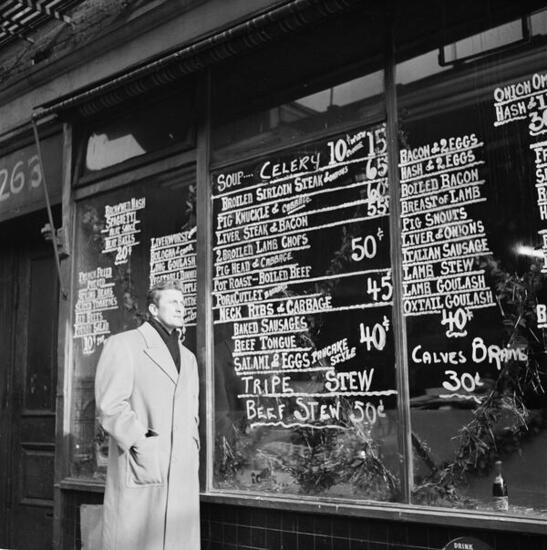 263
BROWNED HASH
SPAGHETTI
MEAT SAUCE
BEEF BALLS
20¢
FRENCH FRIED
POTATO
SPRING BEANS
TOMATOES
BEETS
10¢
LIVERWURST
BOLOGNA
LONG GOULASH
SOUP... CELERY 10¢ 15
BROILED SIRLOIN STEAK & ONIONS 65
PIG KNUCKLE & CABBAGE 60
LIVER STEAK & BACON 55
2 BROILED LAMB CHOPS
PIG HEAD & CABBAGE 50¢
POT ROAST - BOILED BEEF
PORK CUTLET 45
NECK RIBS & CABBAGE
BAKED SAUSAGES
BEEF TONGUE 40¢
SALAMI & EGGS PANCAKE STYLE
TRIPE STEW
BEEF STEW 50¢
BACON & 2 EGGS
HASH & 2 EGGS
BOILED BACON
BREAST OF LAMB
PIG SNOUTS
LIVER & ONIONS
ITALIAN SAUSAGE
LAMB STEW
LAMB GOULASH
OXTAIL GOULASH
40¢
CALVES BRAINS
30¢
ONION OM
HASH & 1
30
DRINK